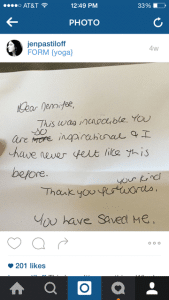 AT&T 12:49 PM 33%
PHOTO
jenpastiloff
FORM {yoga}
4w
Dear Jennifer,
This was incredible. You
are so inspirational & I
have never felt like this
before.
your kind
Thank you for words.
You have saved me.
201 likes